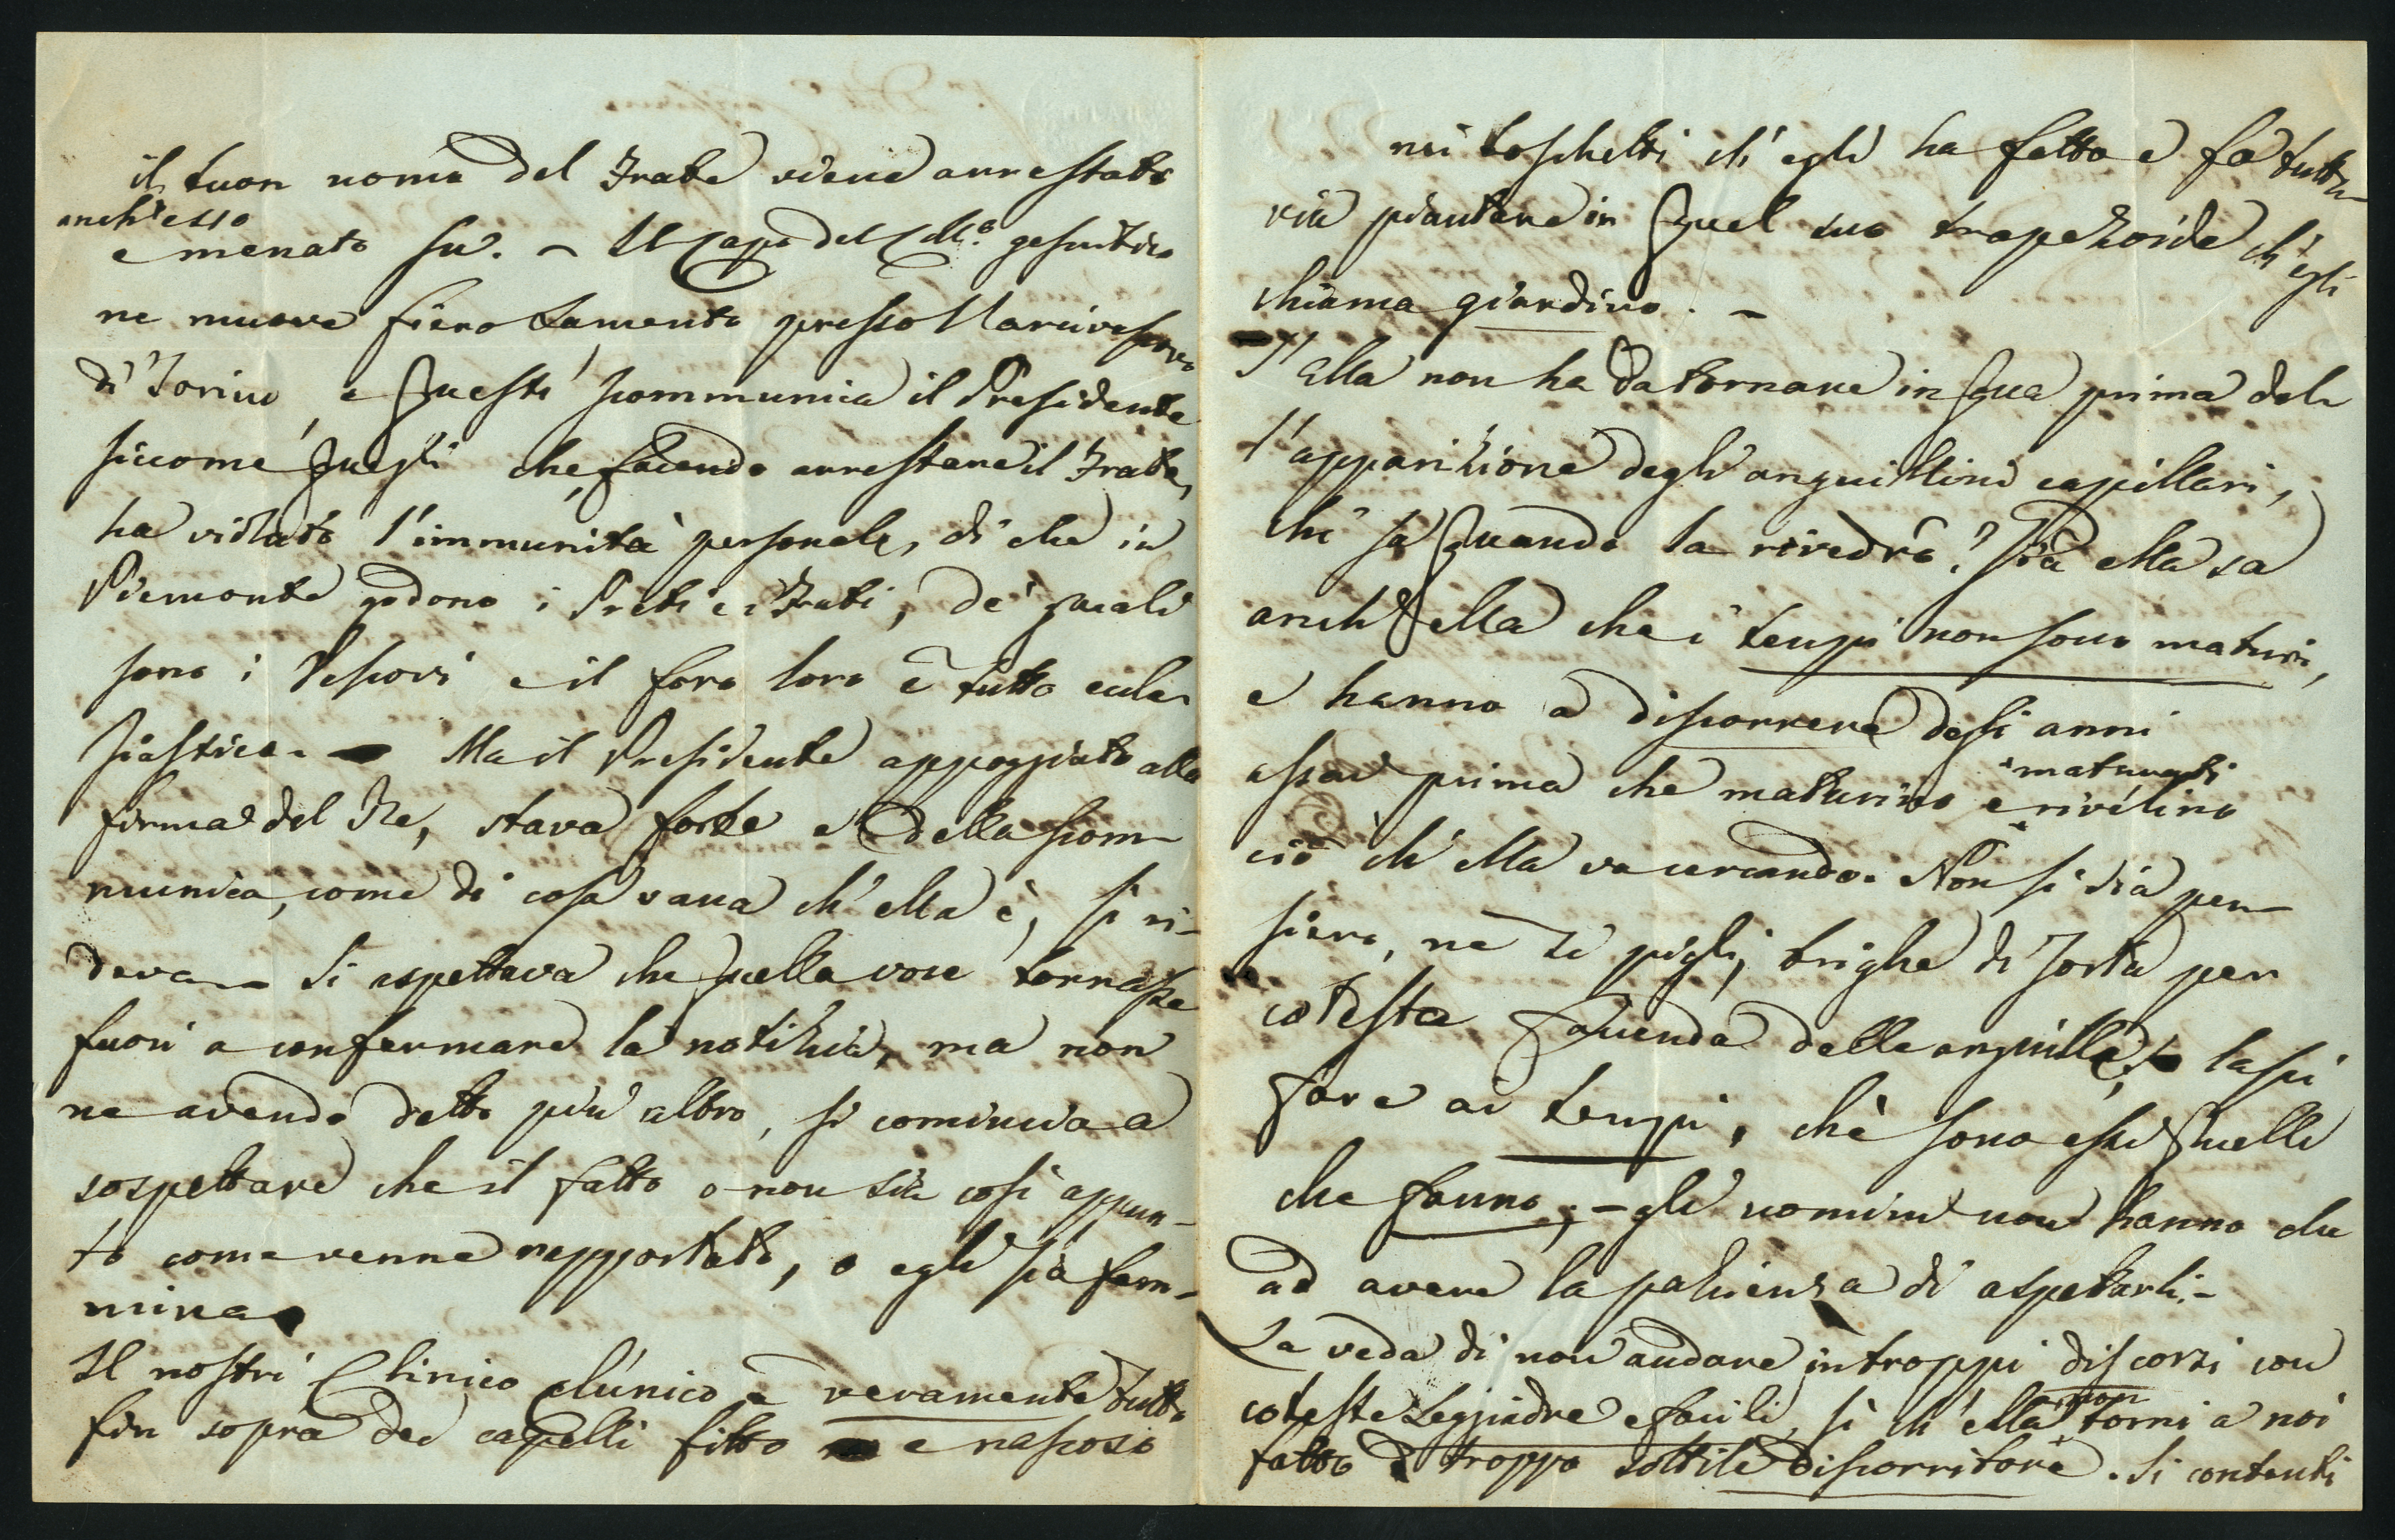 il buon uomo del Frate viene arrestato
anch'esso
e menato su. – Il Capo del Coll.o gesuitico
ne muove fiero lamento presso l'arcivescovo
di Torino, e questi scommunica il Presidente
siccome quegli che, facendo arrestare il Frate,
ha violato l'immunità personale, di che in
Piemonte godono i Preti e i Frati, de' quali
sono i Vescovi e il foro loro è tutto eccle-
siastico. – Ma il Presidente appoggiato alla
firma del Re, stava forte e della scom-
munica, come di cosa vana ch'ella è, si ri-
deva. – Si aspettava che quella voce tornasse
fuori a confermare la notizia, ma non
ne avendo detto più altro, si comincia a
sospettare che il fatto o non sia così appun-
to come venne rapportato, o egli sia fem-
mina.
Il nostri Clinico clinico è veramente tutto
fin sopra dei capelli fitto e nascoso
nei boschetti ch'egli ha fatto e fa tutta-
via piantare in quel suo trapezoide ch'egli
chiama giardino. –
S'Ella non ha da tornare in qua prima del-
l'apparizione degli anguillini capillari,
chi sa quando la rivedrò? Già ella sa
anch'ella che i tempi non sono maturi,
e hanno a discorrere degli anni
assai prima che maturino e rivelino
maturati
ciò ch'ella va cercando. Non si dia pen-
siero, ne si pigli brighe di sorta per
cotesta faccenda delle anguille, lasci
fare ai tempi, chè sono essi quelli
che fanno; – gli uomini non hanno che
ad avere la pazienza di aspettarli. –
La veda di non andare in troppi discorsi con
coteste Leggiadre e facili, sì ch'ella non torni a noi
fatto troppo sottile discorritore. Si contenti